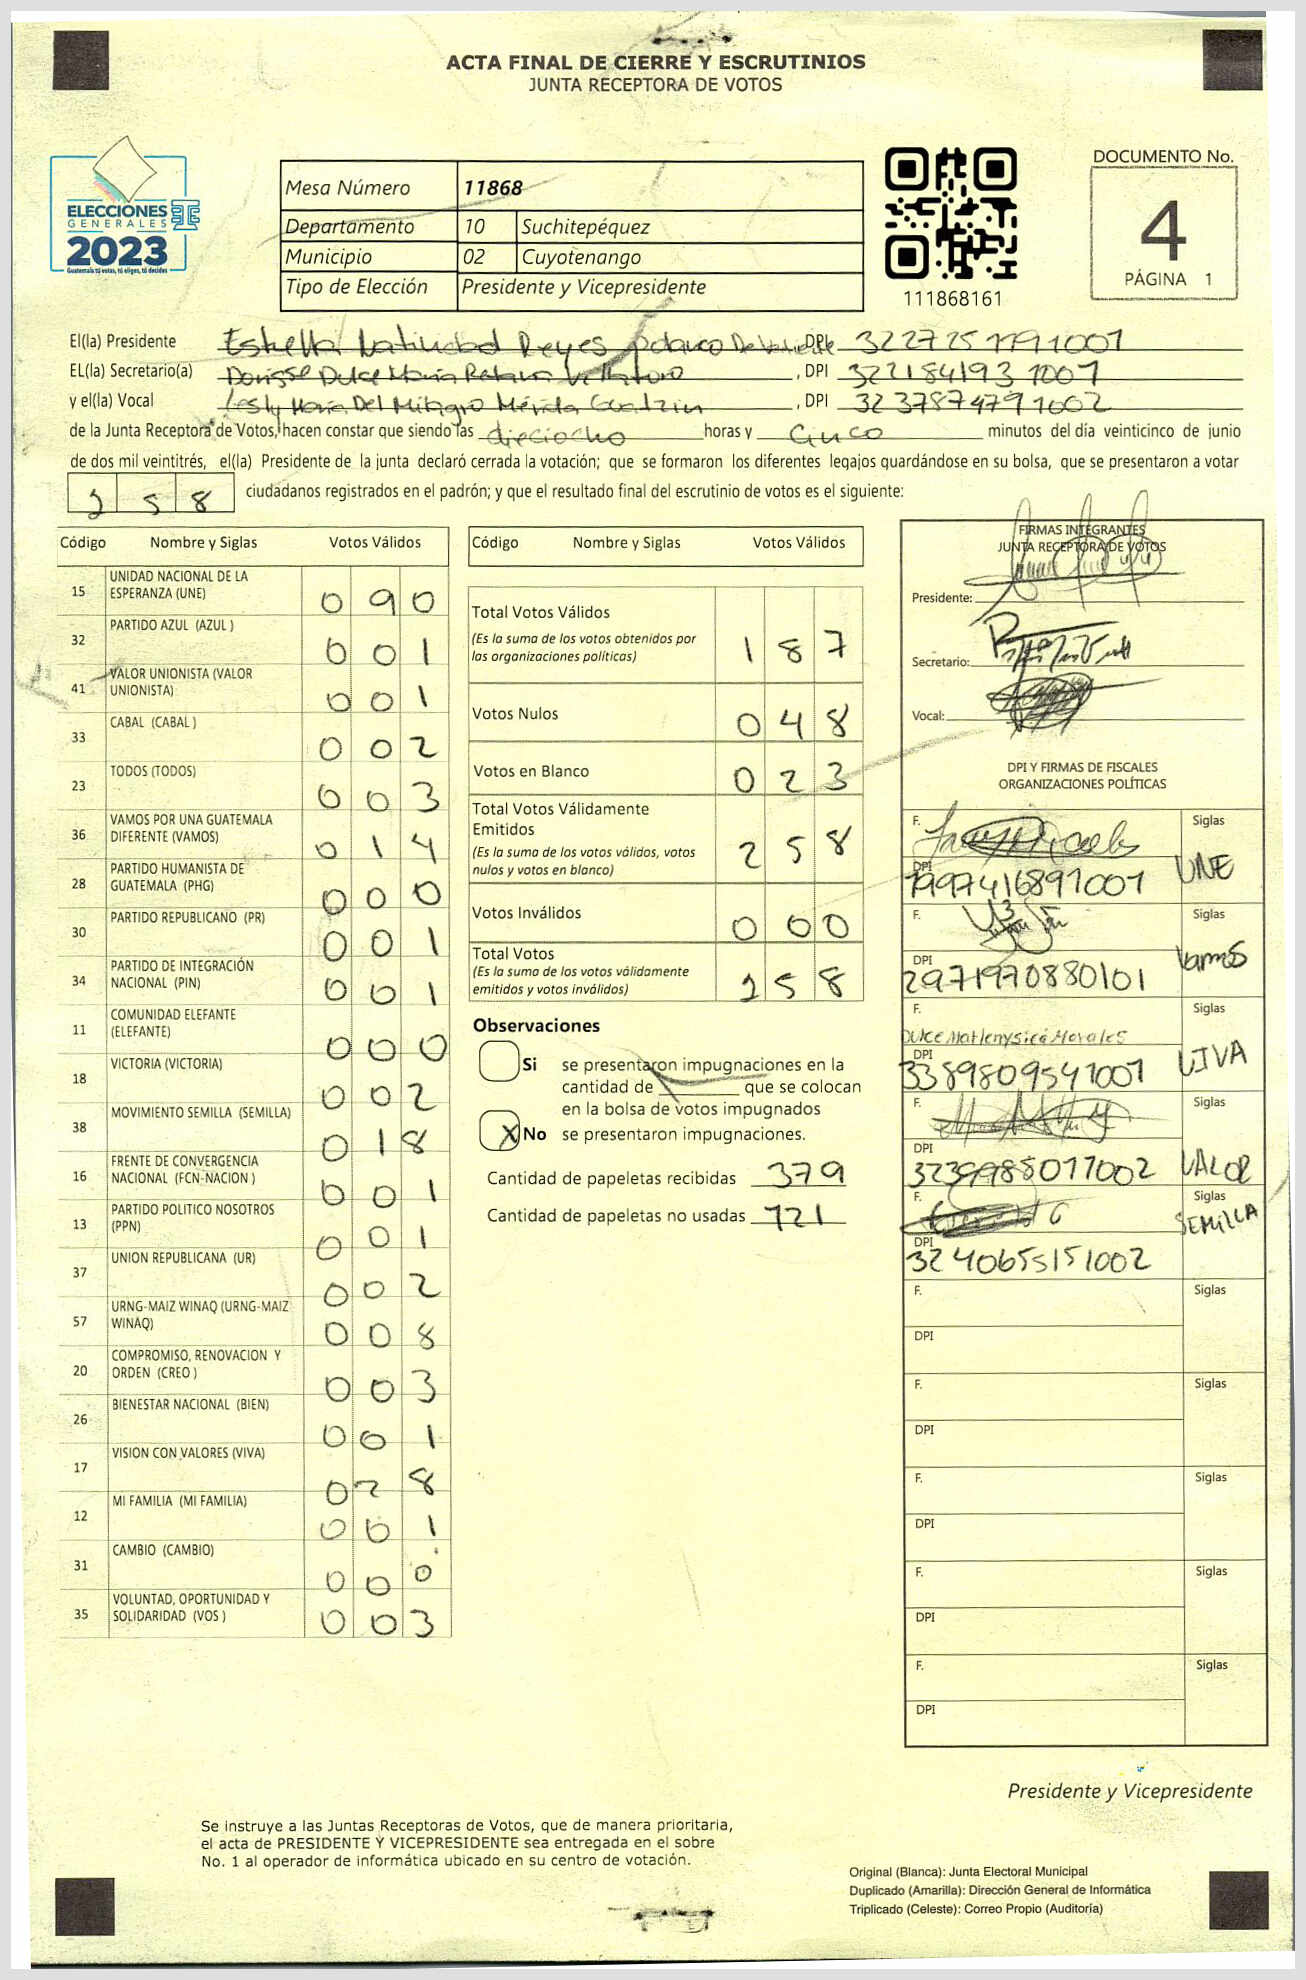 ACTA FINAL DE CIERRE Y ESCRUTINIOS
JUNTA RECEPTORA DE VOTOS
ELECCIONES
GENERALES
2023
Guatemala tú votas, tú eliges, tú decides
Mesa Número 11868
Departamento 10 Suchitepéquez
Municipio 02 Cuyotenango
Tipo de Elección Presidente y Vicepresidente
111868161
DOCUMENTO No.
4
PÁGINA 1
El(la) Presidente Estrella Natividad Reyes Polanco De DPI
EL(la) Secretario(a) Dulce Maria , DPI 322184193 1001
y el(la) Vocal Lesly Maria Del Milagro Mérida , DPI 3237874791002
de la Junta Receptora de Votos, hacen constar que siendo las dieciocho horas y Cinco minutos del día veinticinco de junio
de dos mil veintitrés, el(la) Presidente de la junta declaró cerrada la votación; que se formaron los diferentes legajos guardándose en su bolsa, que se presentaron a votar
258 ciudadanos registrados en el padrón; y que el resultado final del escrutinio de votos es el siguiente:
Código Nombre y Siglas Votos Válidos
15 UNIDAD NACIONAL DE LA ESPERANZA (UNE) 090
32 PARTIDO AZUL (AZUL ) 001
41 VALOR UNIONISTA (VALOR UNIONISTA) 001
33 CABAL (CABAL ) 002
23 TODOS (TODOS) 003
36 VAMOS POR UNA GUATEMALA DIFERENTE (VAMOS) 014
28 PARTIDO HUMANISTA DE GUATEMALA (PHG) 000
30 PARTIDO REPUBLICANO (PR) 001
34 PARTIDO DE INTEGRACIÓN NACIONAL (PIN) 001
11 COMUNIDAD ELEFANTE (ELEFANTE) 000
18 VICTORIA (VICTORIA) 002
38 MOVIMIENTO SEMILLA (SEMILLA) 018
16 FRENTE DE CONVERGENCIA NACIONAL (FCN-NACION ) 001
13 PARTIDO POLITICO NOSOTROS (PPN) 001
37 UNION REPUBLICANA (UR) 002
57 URNG-MAIZ WINAQ (URNG-MAIZ WINAQ) 008
20 COMPROMISO, RENOVACION Y ORDEN (CREO ) 003
26 BIENESTAR NACIONAL (BIEN) 001
17 VISION CON VALORES (VIVA) 028
12 MI FAMILIA (MI FAMILIA) 001
31 CAMBIO (CAMBIO) 000
35 VOLUNTAD, OPORTUNIDAD Y SOLIDARIDAD (VOS ) 003
Código Nombre y Siglas Votos Válidos
Total Votos Válidos 187
(Es la suma de los votos obtenidos por
las organizaciones políticas)
Votos Nulos 048
Votos en Blanco 023
Total Votos Válidamente
Emitidos 258
(Es la suma de los votos válidos, votos
nulos y votos en blanco)
Votos Inválidos 000
Total Votos 258
(Es la suma de los votos válidamente
emitidos y votos inválidos)
Observaciones
Si se presentaron impugnaciones en la
cantidad de que se colocan
en la bolsa de votos impugnados
X No se presentaron impugnaciones.
Cantidad de papeletas recibidas 379
Cantidad de papeletas no usadas 121
FIRMAS INTEGRANTES
JUNTA RECEPTORA DE VOTOS
Presidente:
Secretario:
Vocal:
DPI Y FIRMAS DE FISCALES
ORGANIZACIONES POLÍTICAS
F. Siglas
DPI 1997416891001 UNE
F. Siglas
DPI 2971970880101 Vamos
F. Siglas
DPI 3389809541001 VIVA
F. Siglas
DPI 3239985017002 VALOR
F. Siglas
DPI 3240655151002 SEMILLA
F. Siglas
DPI
F. Siglas
DPI
F. Siglas
DPI
F. Siglas
DPI
F. Siglas
DPI
Presidente y Vicepresidente
Se instruye a las Juntas Receptoras de Votos, que de manera prioritaria,
el acta de PRESIDENTE Y VICEPRESIDENTE sea entregada en el sobre
No. 1 al operador de informática ubicado en su centro de votación.
Original (Blanca): Junta Electoral Municipal
Duplicado (Amarilla): Dirección General de Informática
Triplicado (Celeste): Correo Propio (Auditoría)